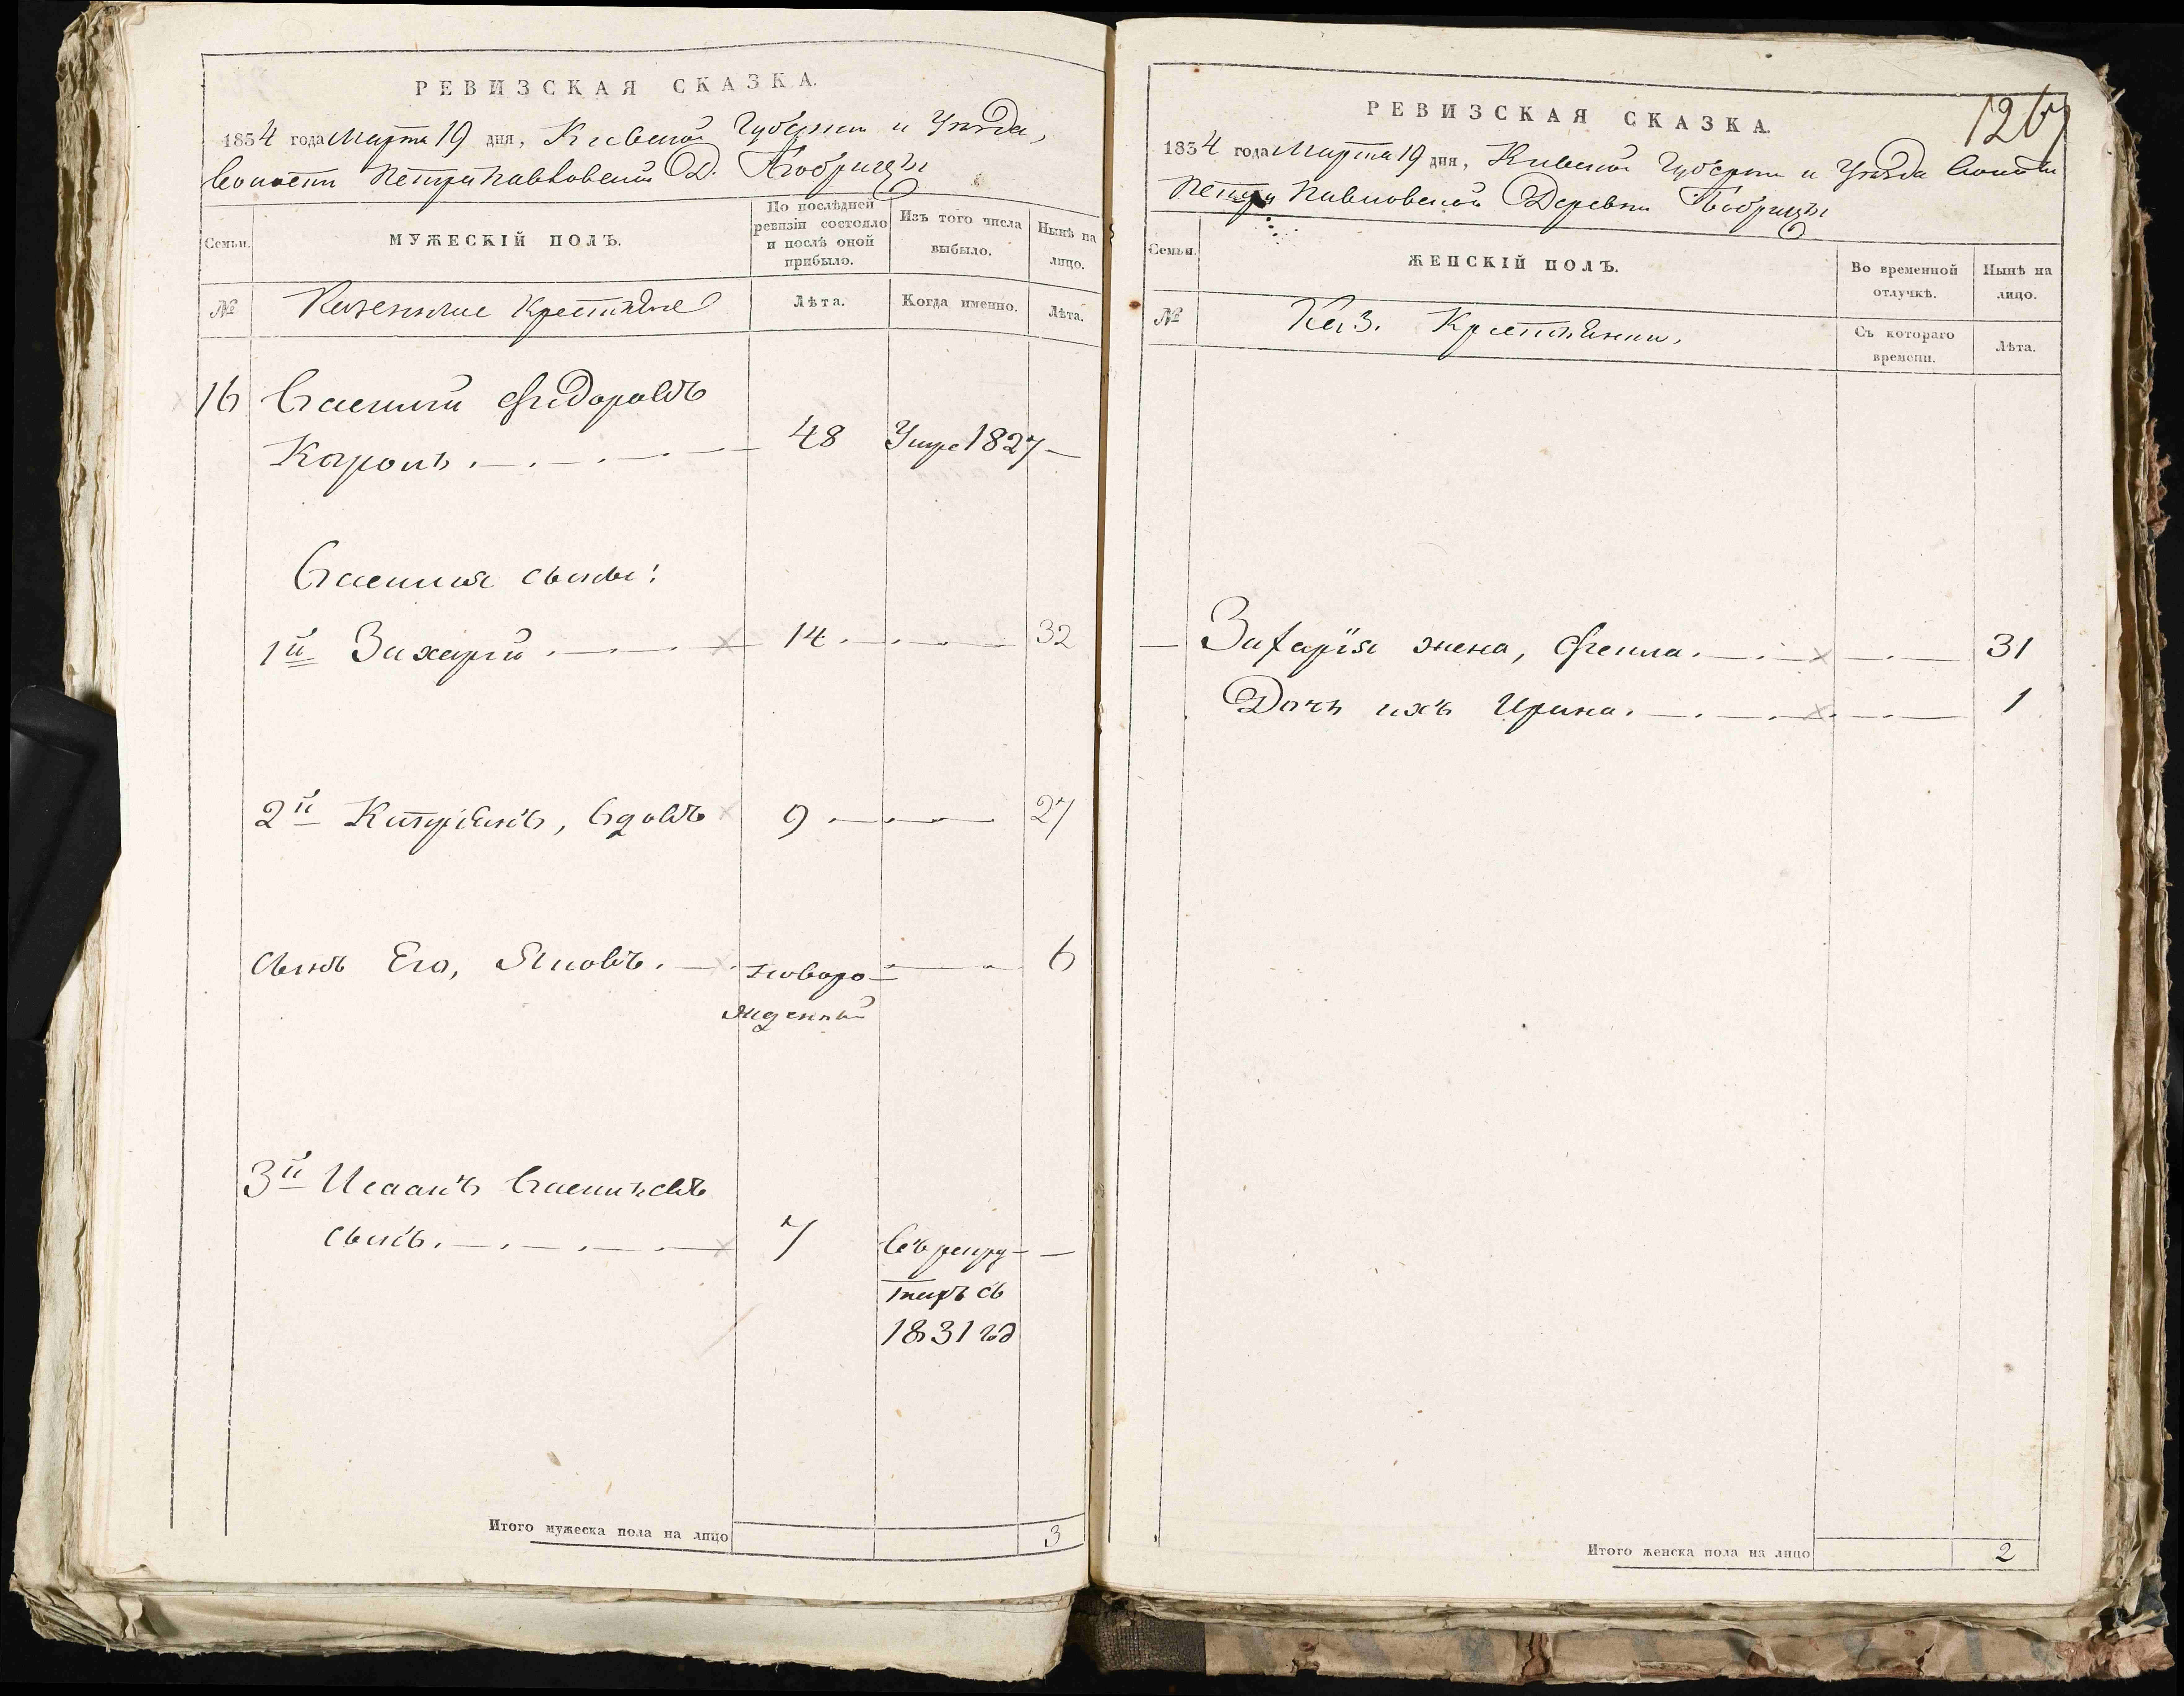 РЕВИЗСКАЯ СКАЗКА.
1834 года Марта 19 дня, Киевской Губернии и Уезда,
Волости Петропавловской Д. Бобрицы
Семьи.
МУЖЕСКІЙ ПОЛЪ.
По послѣдней ревизіи состояло и послѣ оной прибыло.
Изъ того числа выбыло.
Нынѣ на лицо.
№
Казенные Крестьяне
Лѣта.
Когда именно.
Лѣта.
16 Василий Фидоровъ
Кароль 48 Умре 1827
Василия сыны:
1й Захарій 14 32
2й Катріянъ, вдовъ 9 27
Сынъ Его, Яковъ. новоро- 6
жденный
3й Исаакъ Васильевъ
сынъ. 7 Въ рекру-
тахъ съ
1831 год
Итого мужеска пола на лицо 3
126
РЕВИЗСКАЯ СКАЗКА.
1834 года Марта 19 дня, Киевской Губернии и Уезда Волости
Петро Павловской Деревни Бобрицы
Семьи.
ЖЕНСКІЙ ПОЛЪ.
Во временной отлучкѣ.
Нынѣ на лицо.
№
Каз. Крестьянки.
Съ котораго времени.
Лѣта.
Захарія жена, Фекла. 31
Дочь ихъ Ирина. 1
Итого женска пола на лицо 2